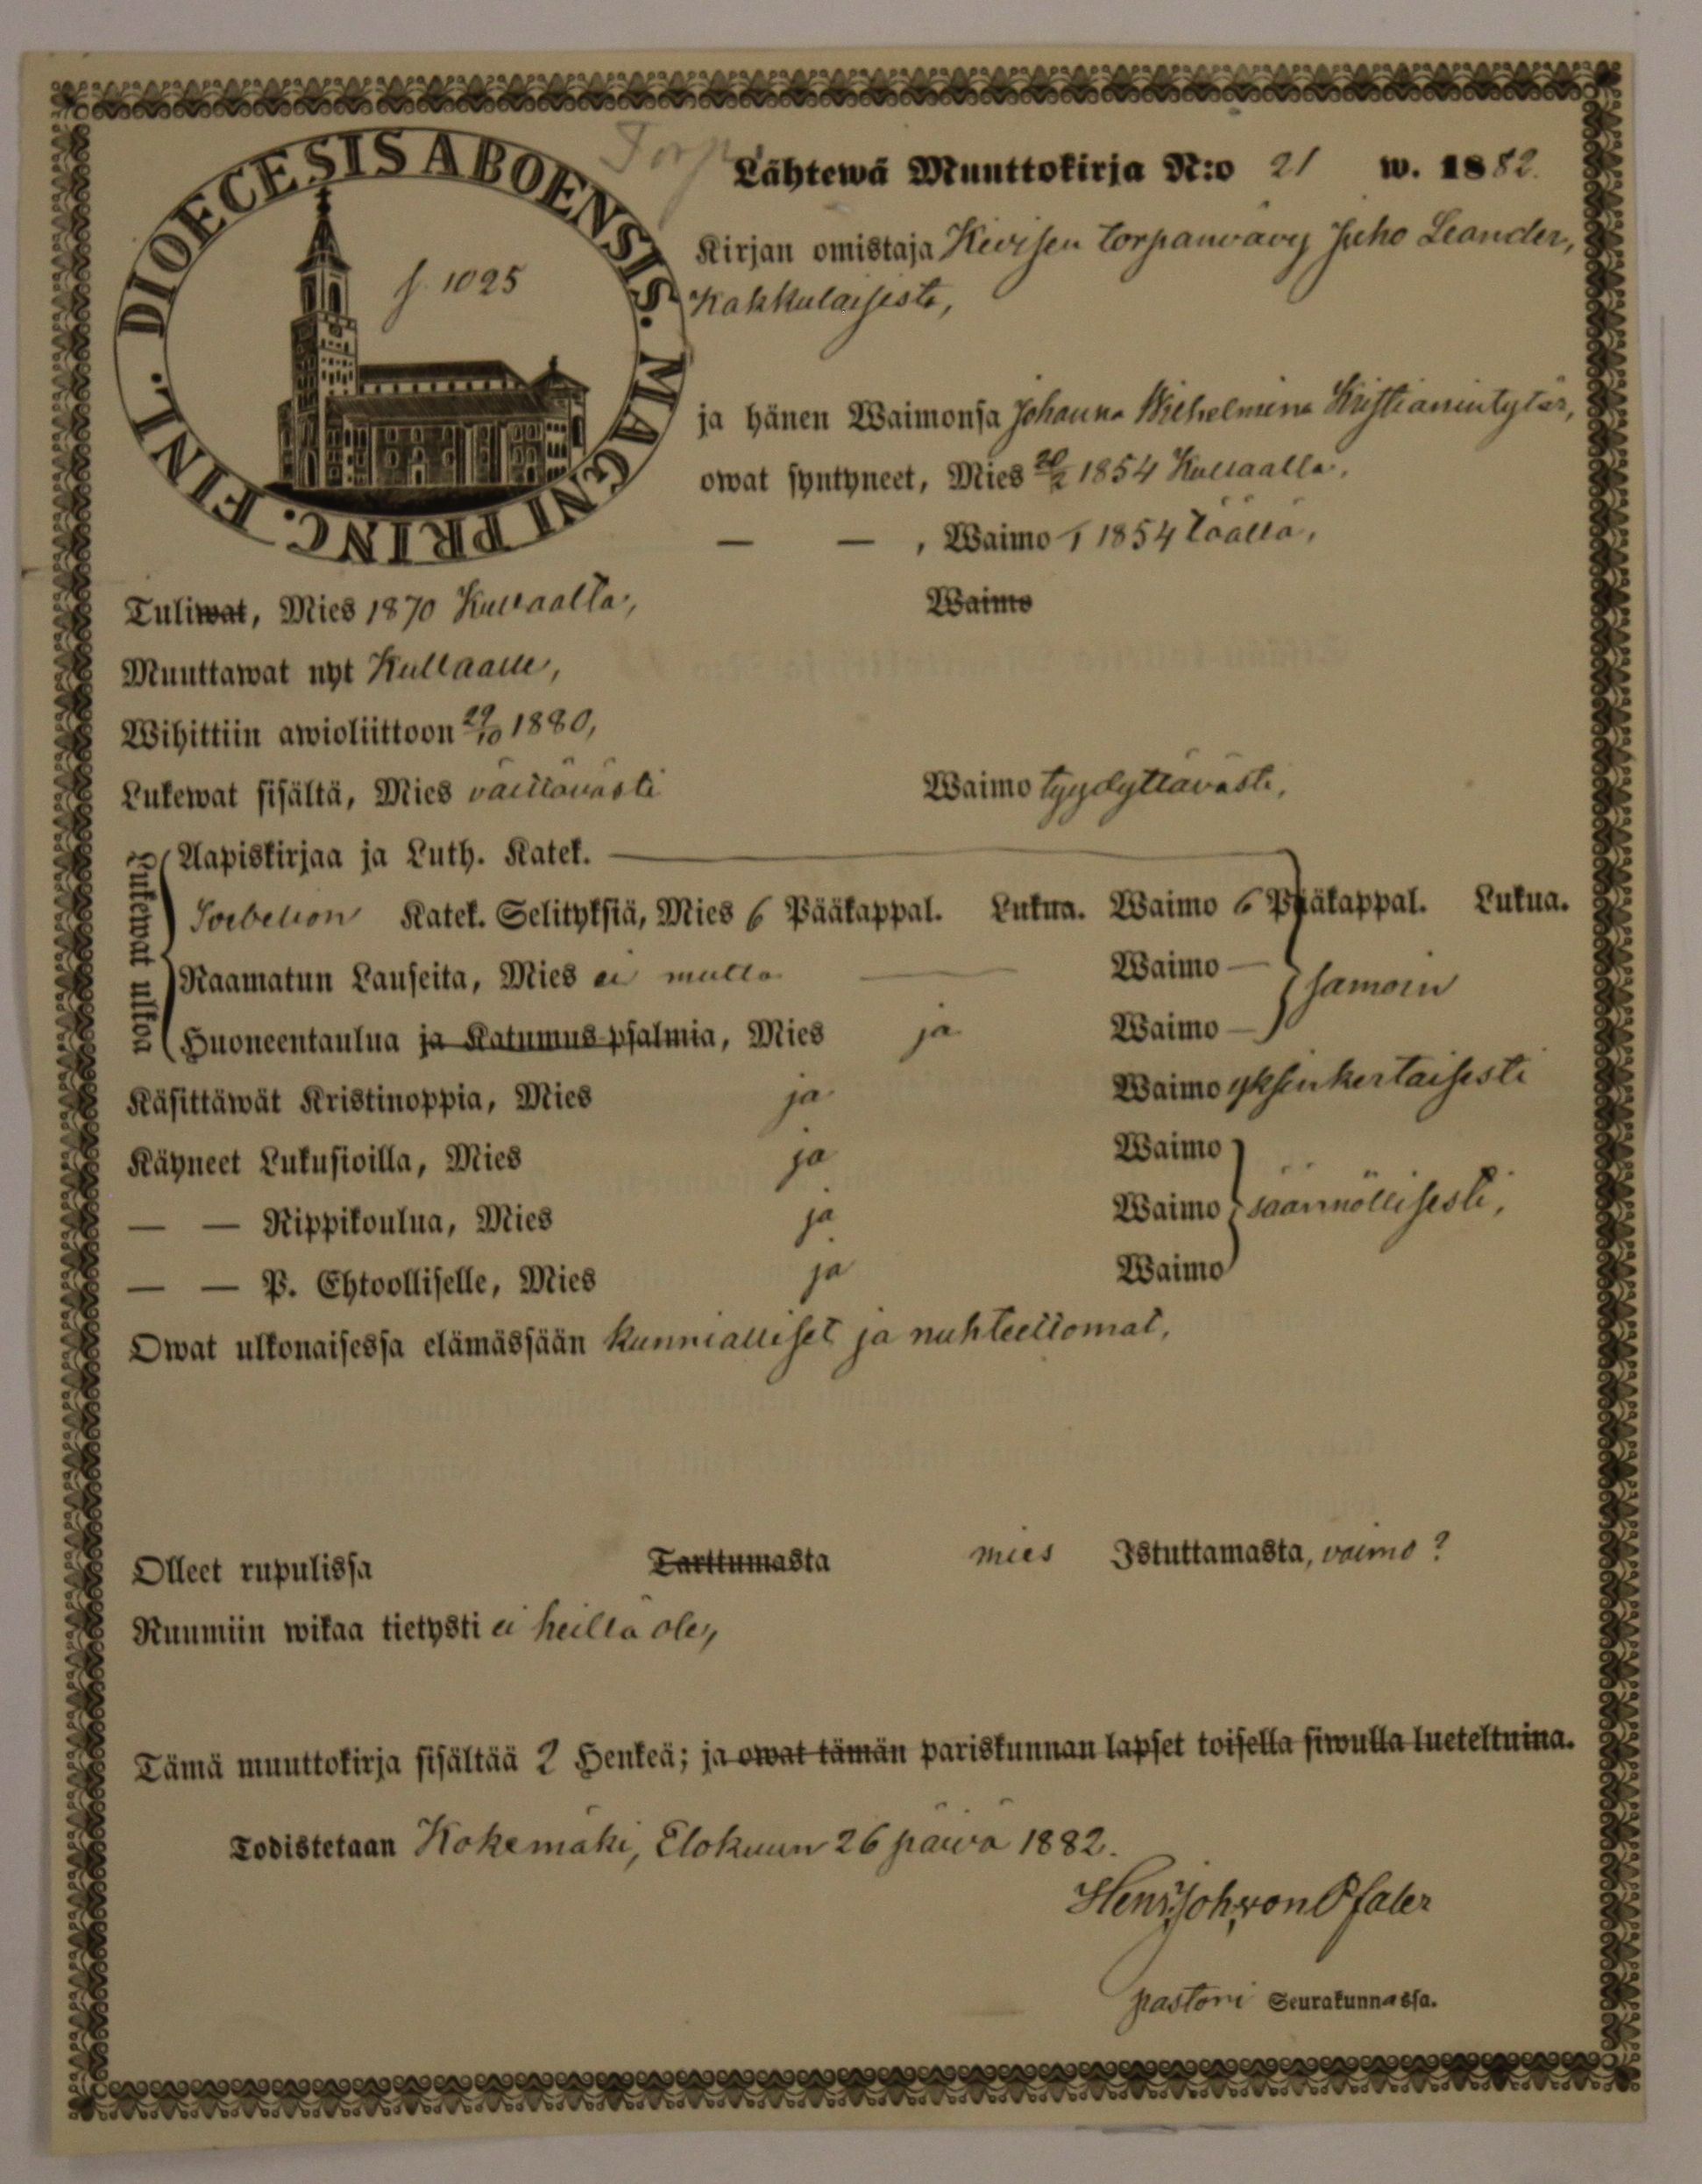 DIOECESIS ABOENSIS. MAGNI PRINC. FINL.
f. 1025
Torp
Lähtewä Muuttokirja N:o 21 w. 1882.
Kirjan omistaja Kivisen torpanvävy Juho Leander,
Kakkulaisista,
ja hänen Waimonsa Johanna Wilhelmina Kristianintytär,
owat syntyneet, Mies 20/2 1854 Kullaalla,
— — , Waimo 1854 täällä,
Tuliwat, Mies 1870 Kullaalta, Waimo
Muuttawat nyt Kullaalle,
Wihittiin awioliittoon 29/10 1880,
Lukewat sisältä, Mies välttävästi Waimo tyydyttävästi,
Lukewat ulkoa
Aapiskirjaa ja Luth. Katek.
Katek. Selityksiä, Mies 6 Pääkappal. Lukua. Waimo 6 Pääkappal. Lukua.
Raamatun Lauseita, Mies ei mutta — Waimo —
samoin
Huoneentaulua ja Katumus-psalmia, Mies ja Waimo —
Käsittäwät Kristinoppia, Mies ja Waimo yksinkertaisesti
Käyneet Lukusioilla, Mies ja Waimo
— — Rippikoulua, Mies ja Waimo säännöllisesti,
— — P. Ehtoolliselle, Mies ja Waimo
Owat ulkonaisessa elämässään kunnialliset ja nuhteettomat,
Olleet rupulissa Tarttumasta mies Istuttamasta, vaimo ?
Ruumiin wikaa tietysti ei heillä ole,
Tämä muuttokirja sisältää 2 Henkeä; ja owat tämän pariskunnan lapset toisella siwulla lueteltuina.
Todistetaan Kokemäki, Elokuun 26 päivä 1882.
Henr. Joh. von Pfaler
pastori Seurakunnassa.